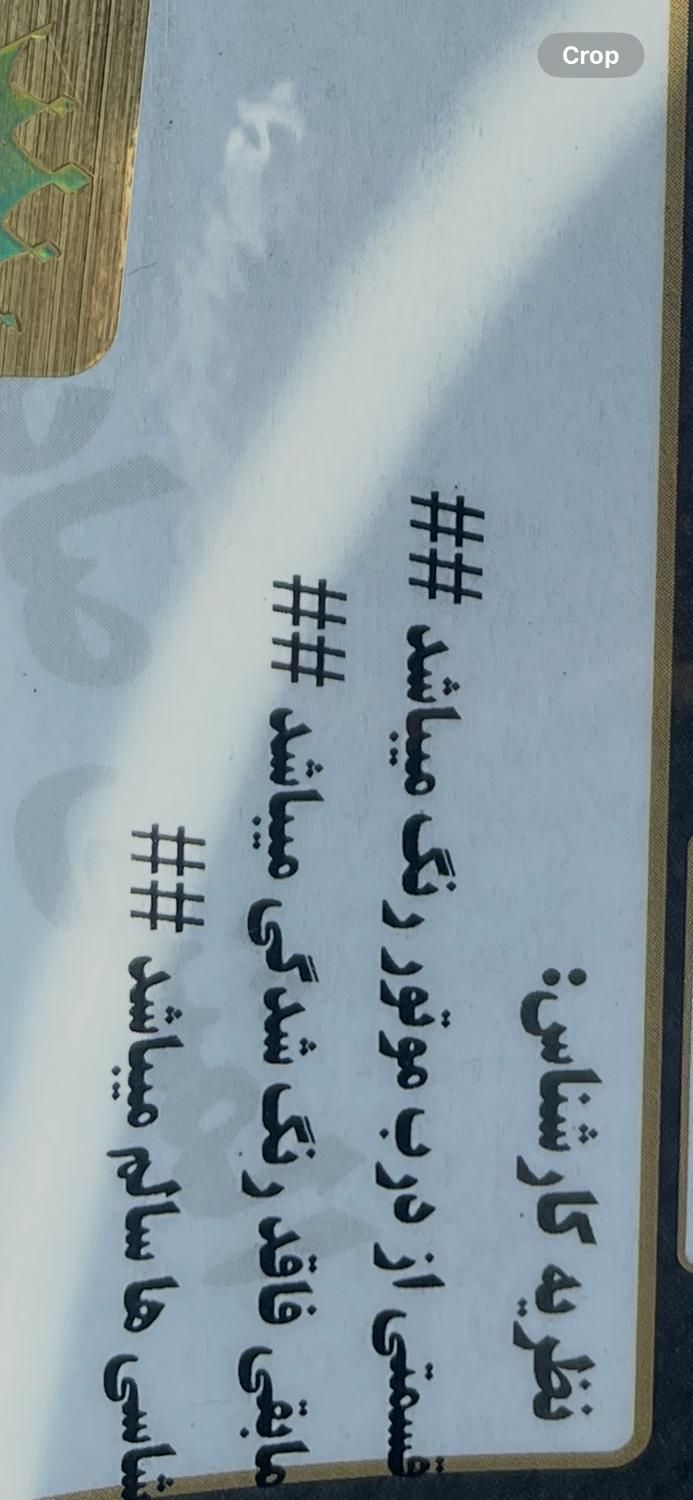 Crop
نظریه کارشناس:
قسمتی از درب موتور رنگ میباشد ##
مابقی فاقد رنگ شدگی میباشد ##
شاسی ها سالم میباشد ##